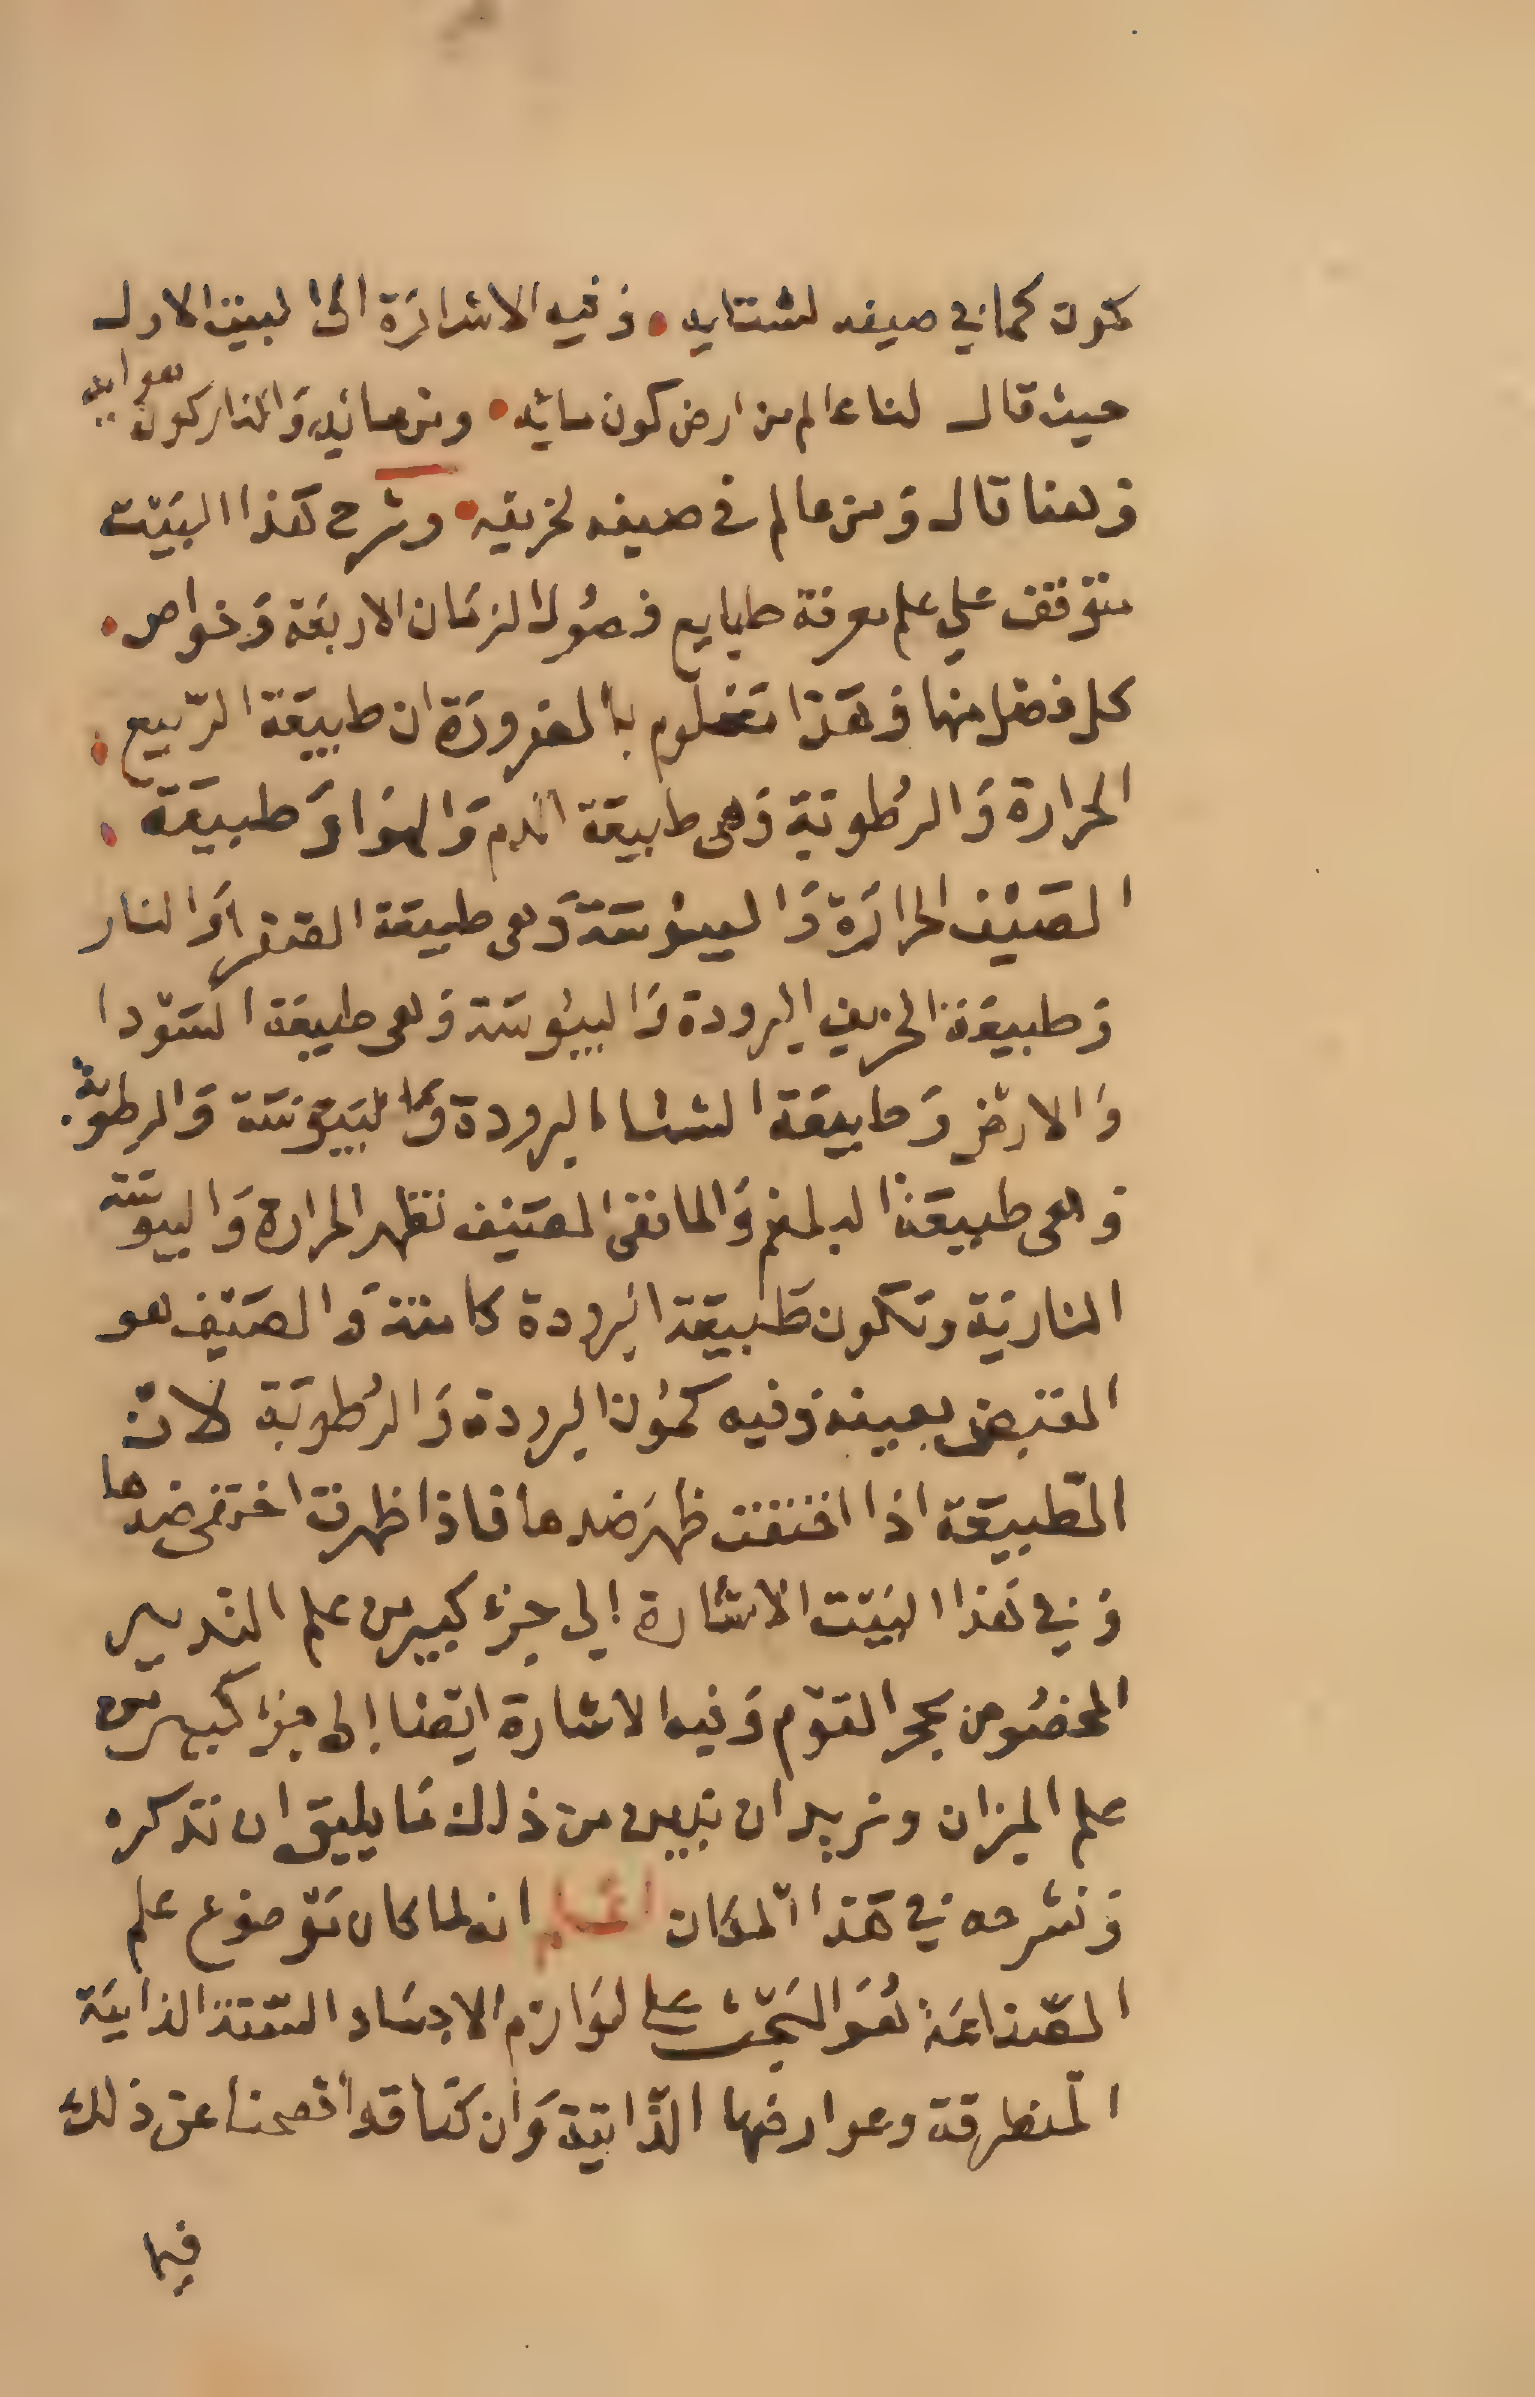 كون كما في صيفه لشتايه • وفيه الاشارة الى البيت الاول
حيث قال لنا عالم من ارض كون مائه • ومن مائه والنار كون هوايه
وهنا قال ومن عالم في صيفه لخريفه • وشرح هذا البيت
متوقف علي علم معرفة طبايع فصول الزمان الاربعة وخواص •
كل فصل منها وهذا معلوم بالضرورة ان طبيعة الربيع •
الحرارة والرطوبة وهي طبيعة الدم والهوا وطبيعة •
الصيف الحرارة واليبوسة وهي طبيعة الصفرا والنار
وطبيعة الخريف البرودة واليبوسة وهي طبيعة السودا
والارض وطبيعة الشتا البرودة واليبوسة والرطوبة
وهي طبيعة البلغم والما ففي الصيف تظهر الحرارة واليبوسة
النارية وتكون طبيعة البرودة كامنة والصيف هو
القبض بعينه وفيه كمون البرودة والرطوبة لان
الطبيعة اذا اختفت ظهر ضدها فاذا ظهرت اختفى ضدها
وفي هذا البيت الاشارة إلى جزء كبير من علم التدبير
المخصوص بحجر القوم وفيه الاشارة ايضا إلى جزء كبير من
علم الميزان ونريد ان نبين من ذلك ما يليق ان نذكره
ونشرحه في هذا المكان اعلم انه لما كان موضوع علم
الصناعة هو البحث على لوازم الاجساد الستة الذايبة
المنطرقة وعوارضها الذاتية وان كنا قد افصحنا عن ذلك
فيما